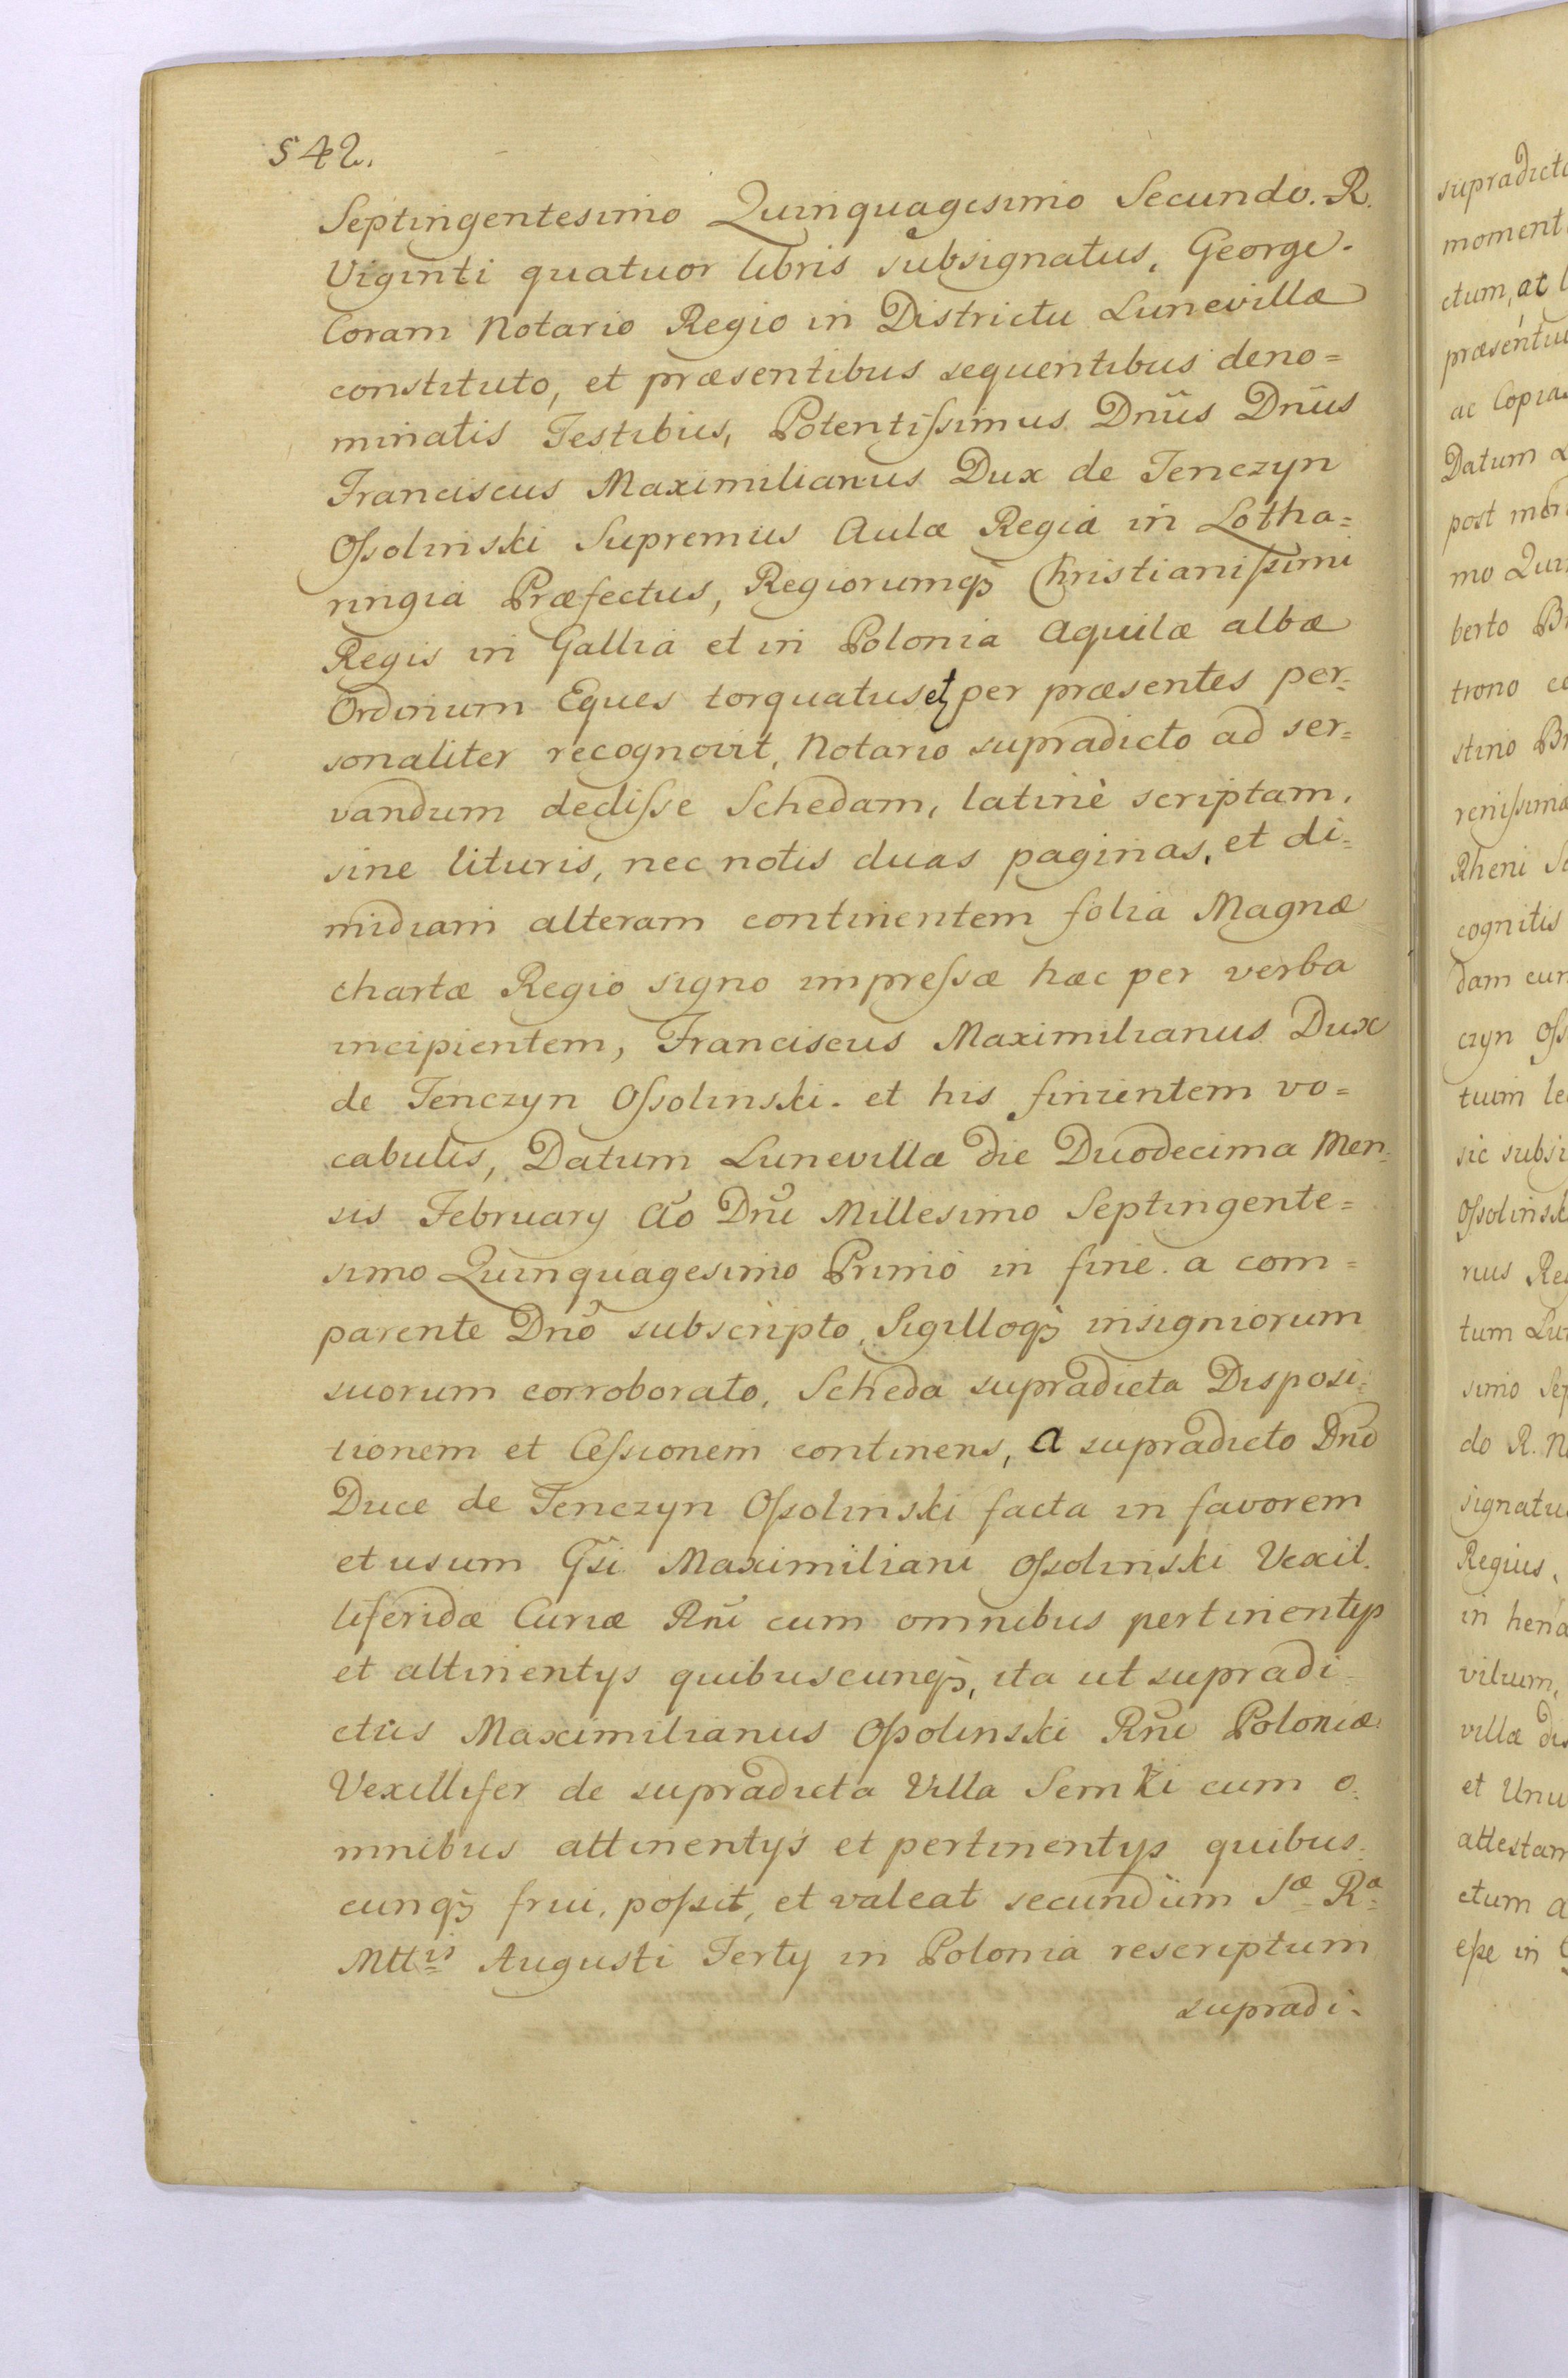 542.
Septingentesimo Quinquagesimo Secundo. R.
Viginti quatuor libris subsignatus, George.
Coram Notario Regio in Districtu Lunevillæ
constituto, et præsentibus sequentibus deno=
minatis Testibus, Potentissimus Dnus Dnus
Franciscus Maximilianus Dux de Tenczyn
Ossolinski Supremus Aulæ Regiæ in Lotha=
ringia Præfectus, Regiorumq3 Christianissimi
Regis in Gallia et in Polonia Aquilæ albæ
Ordinum Eques torquatus et per præsentes per=
sonaliter recognovit, Notario supradicto ad ser=
vandum dedisse Schedam, latinè scriptam,
sine lituris, nec notis duas paginas, et di=
midiam alteram continentem folia Magnæ
chartæ Regio signo impressæ hæc per verba
incipientem, Franciscus Maximilianus Dux
de Tenczyn Ossolinski. et his finientem vo=
cabulis, Datum Lunevillæ die Duodecima Men=
sis February Aõ Dni Millesimo Septingente=
simo Quinquagesimo Primo in fine. a com=
parente Dno subscripto, Sigilloq3 insigniorum
suorum corroborato, Scheda supradicta Disposi=
tionem et Cessionem continens, a supradicto Dno
Duce de Tenczyn Ossolinski facta in favorem
et usum Gsi Maximiliani Ossolinski Vexil=
liferidæ Curiæ Rni cum omnibus pertinentys
et attinentys quibuscunq3, ita ut supradi=
ctus Maximilianus Ossolinski Rni Poloniæ
Vexillifer de supradicta Villa Semki cum o=
mnibus attinentys et pertinentys quibus=
cunq3 frui, possit, et valeat secundùm Sæ Ræ
Mttis Augusti Terty in Polonia rescriptum
supradi=
supradict
moment
ctum, ac
præsentiu
ac Copia
Datum
post
mo Qui
berto
trono
stino
renissimæ
Rheni
cognitis
dam
czyn
tum
sic subsi
Ossolinsk
rius
tum
simo Sep
do R.
signatu
Regius,
in
villæ
et Unu
attestam
ctum
esse in